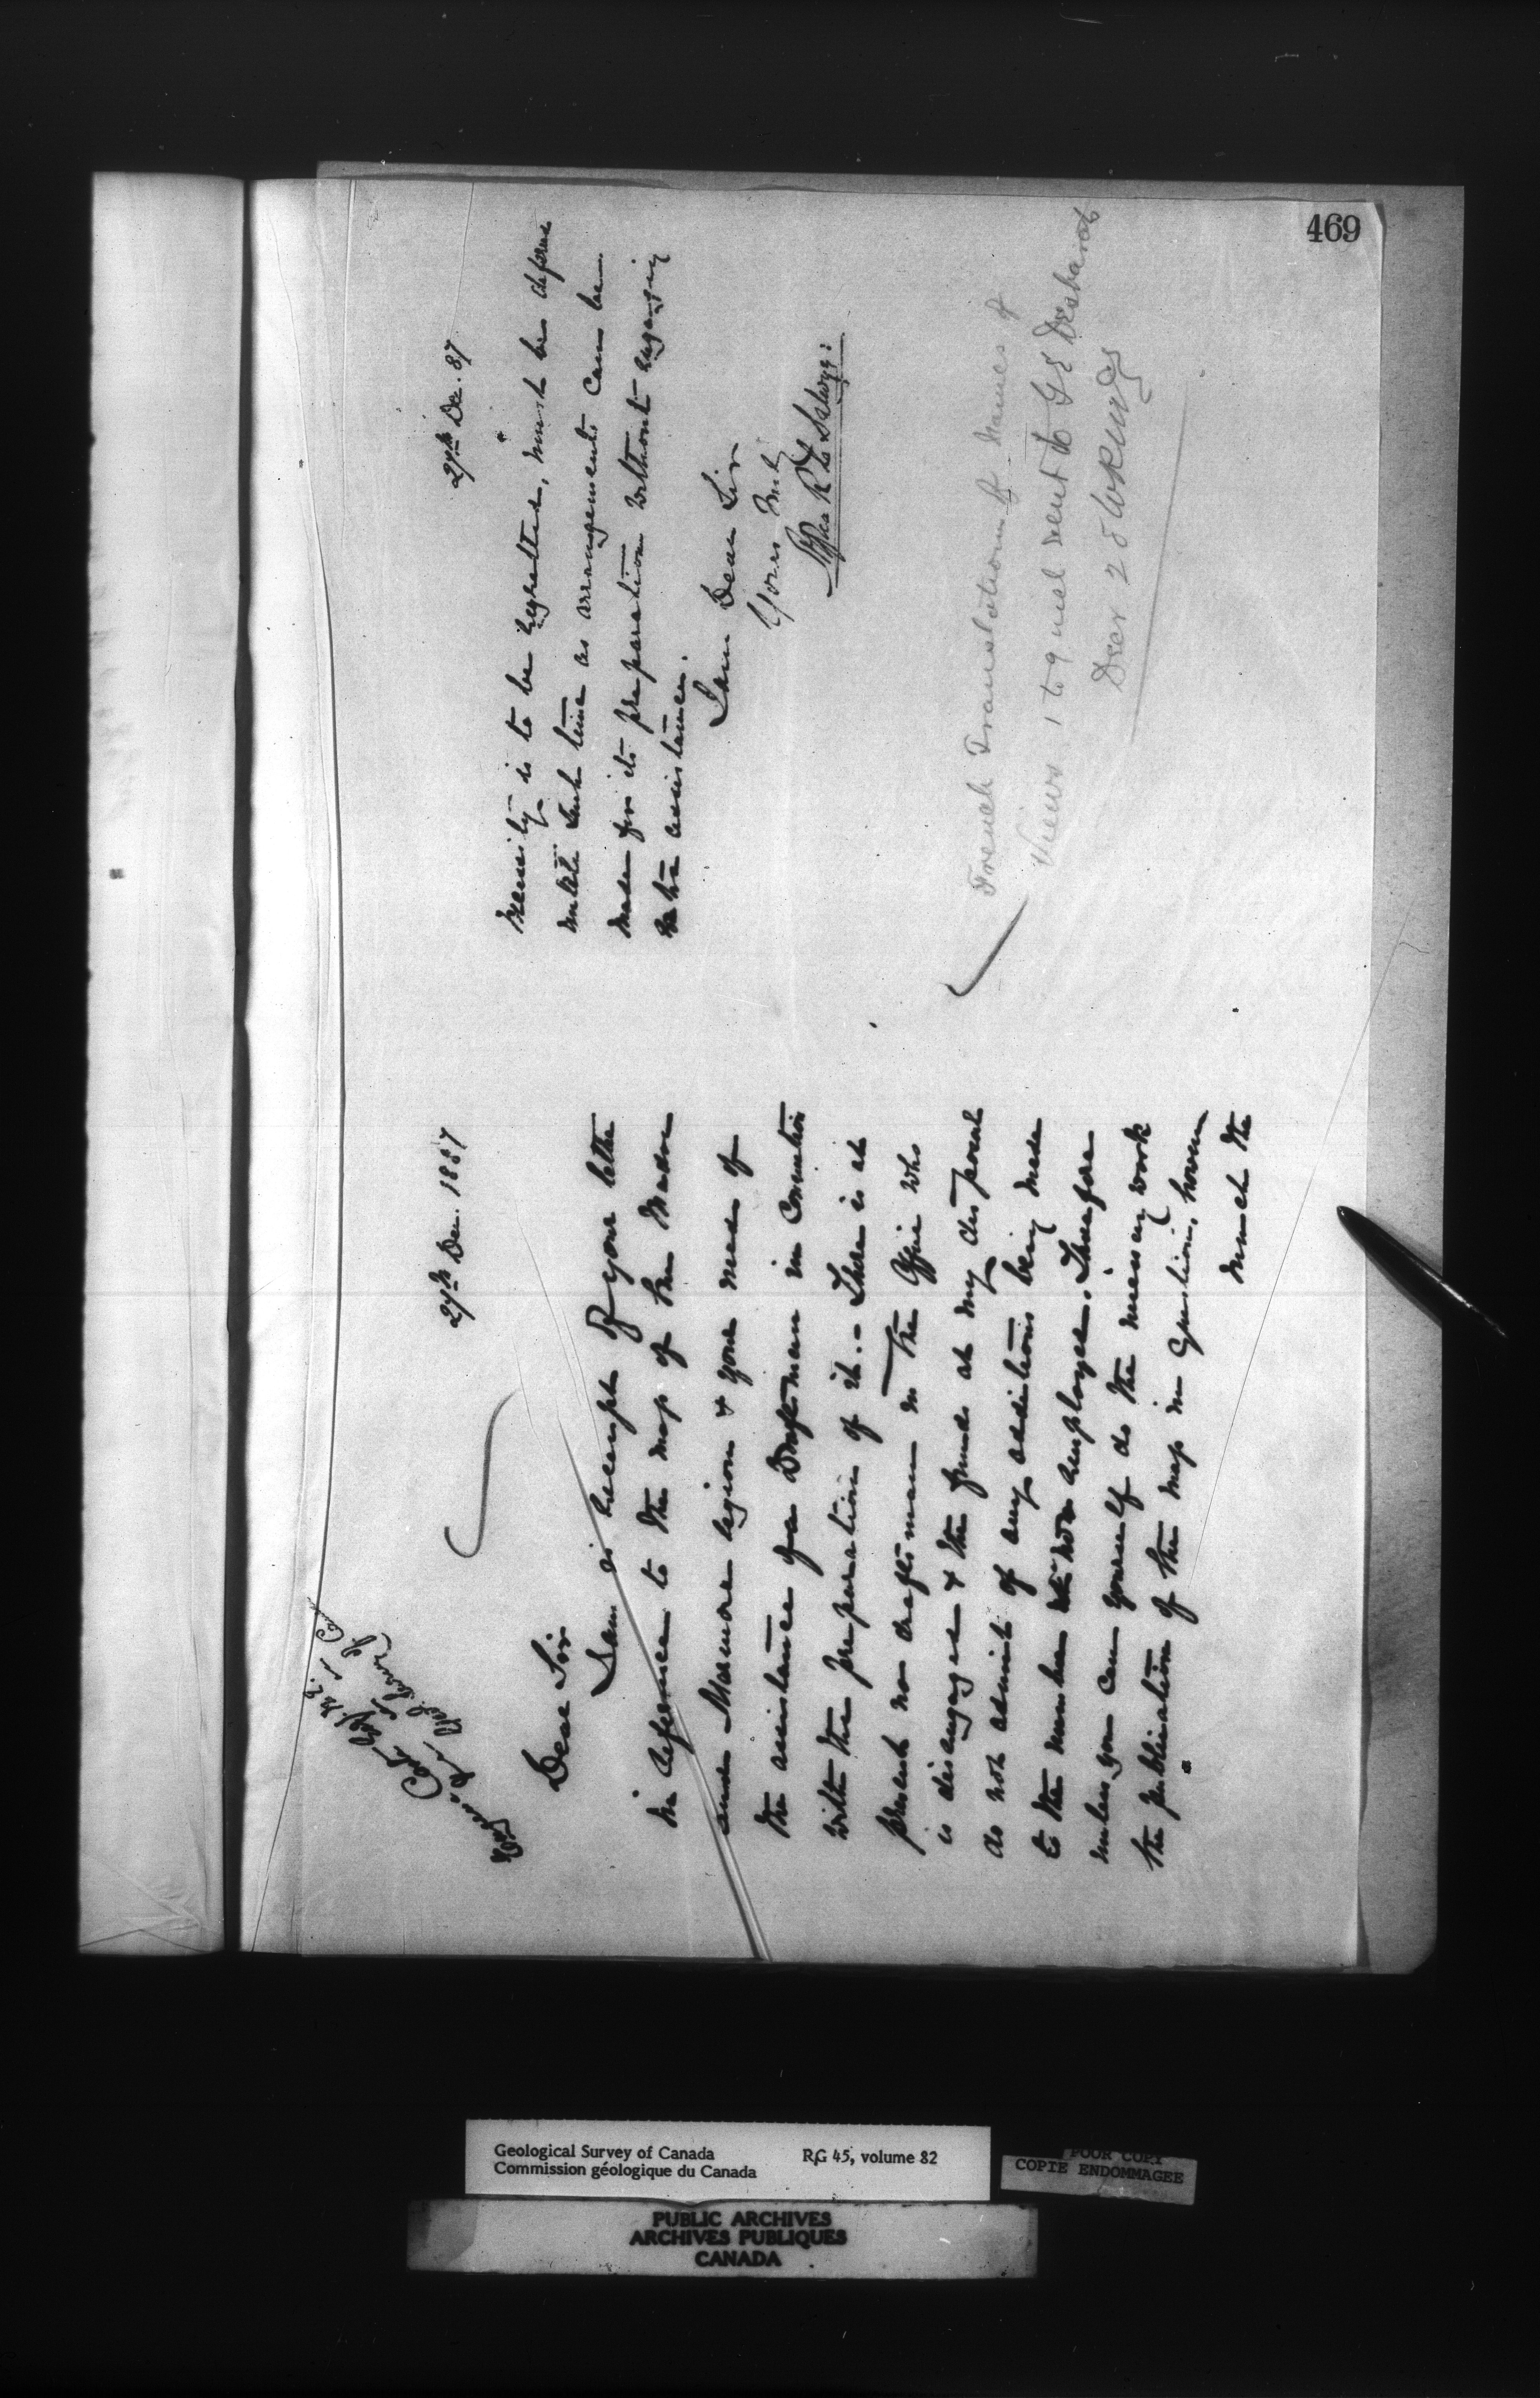 469
27th Dec. 1887
Dear Sir
I am in receipt of your letter
in reference to the map of the Madoc
and Marmora region & your need of
the assistance of a Draftsman in connection
with the preparation of it. - There is at
present no draftsman in the Office who
is disengaged & the funds at my disposal
do not admit of any additions being made
to the number now employed. Therefore
unless you can yourself do the necessary work
the publication of the map in question, however
much the
27th Dec. 87
necessity is to be regretted, must be deferred
until such time as arrangements can be
made for its preparation without engaging
extra assistance.
I am Dear Sir
Yours truly
Alfred R C Selwyn
French Translation of Names of
Views 1 to 9 mel sent to G E Desbarats
Decr 28
Geological Survey of Canada RG 45, volume 82
Commission géologique du Canada
POOR COPY
COPIE ENDOMMAGEE
PUBLIC ARCHIVES
ARCHIVES PUBLIQUES
CANADA